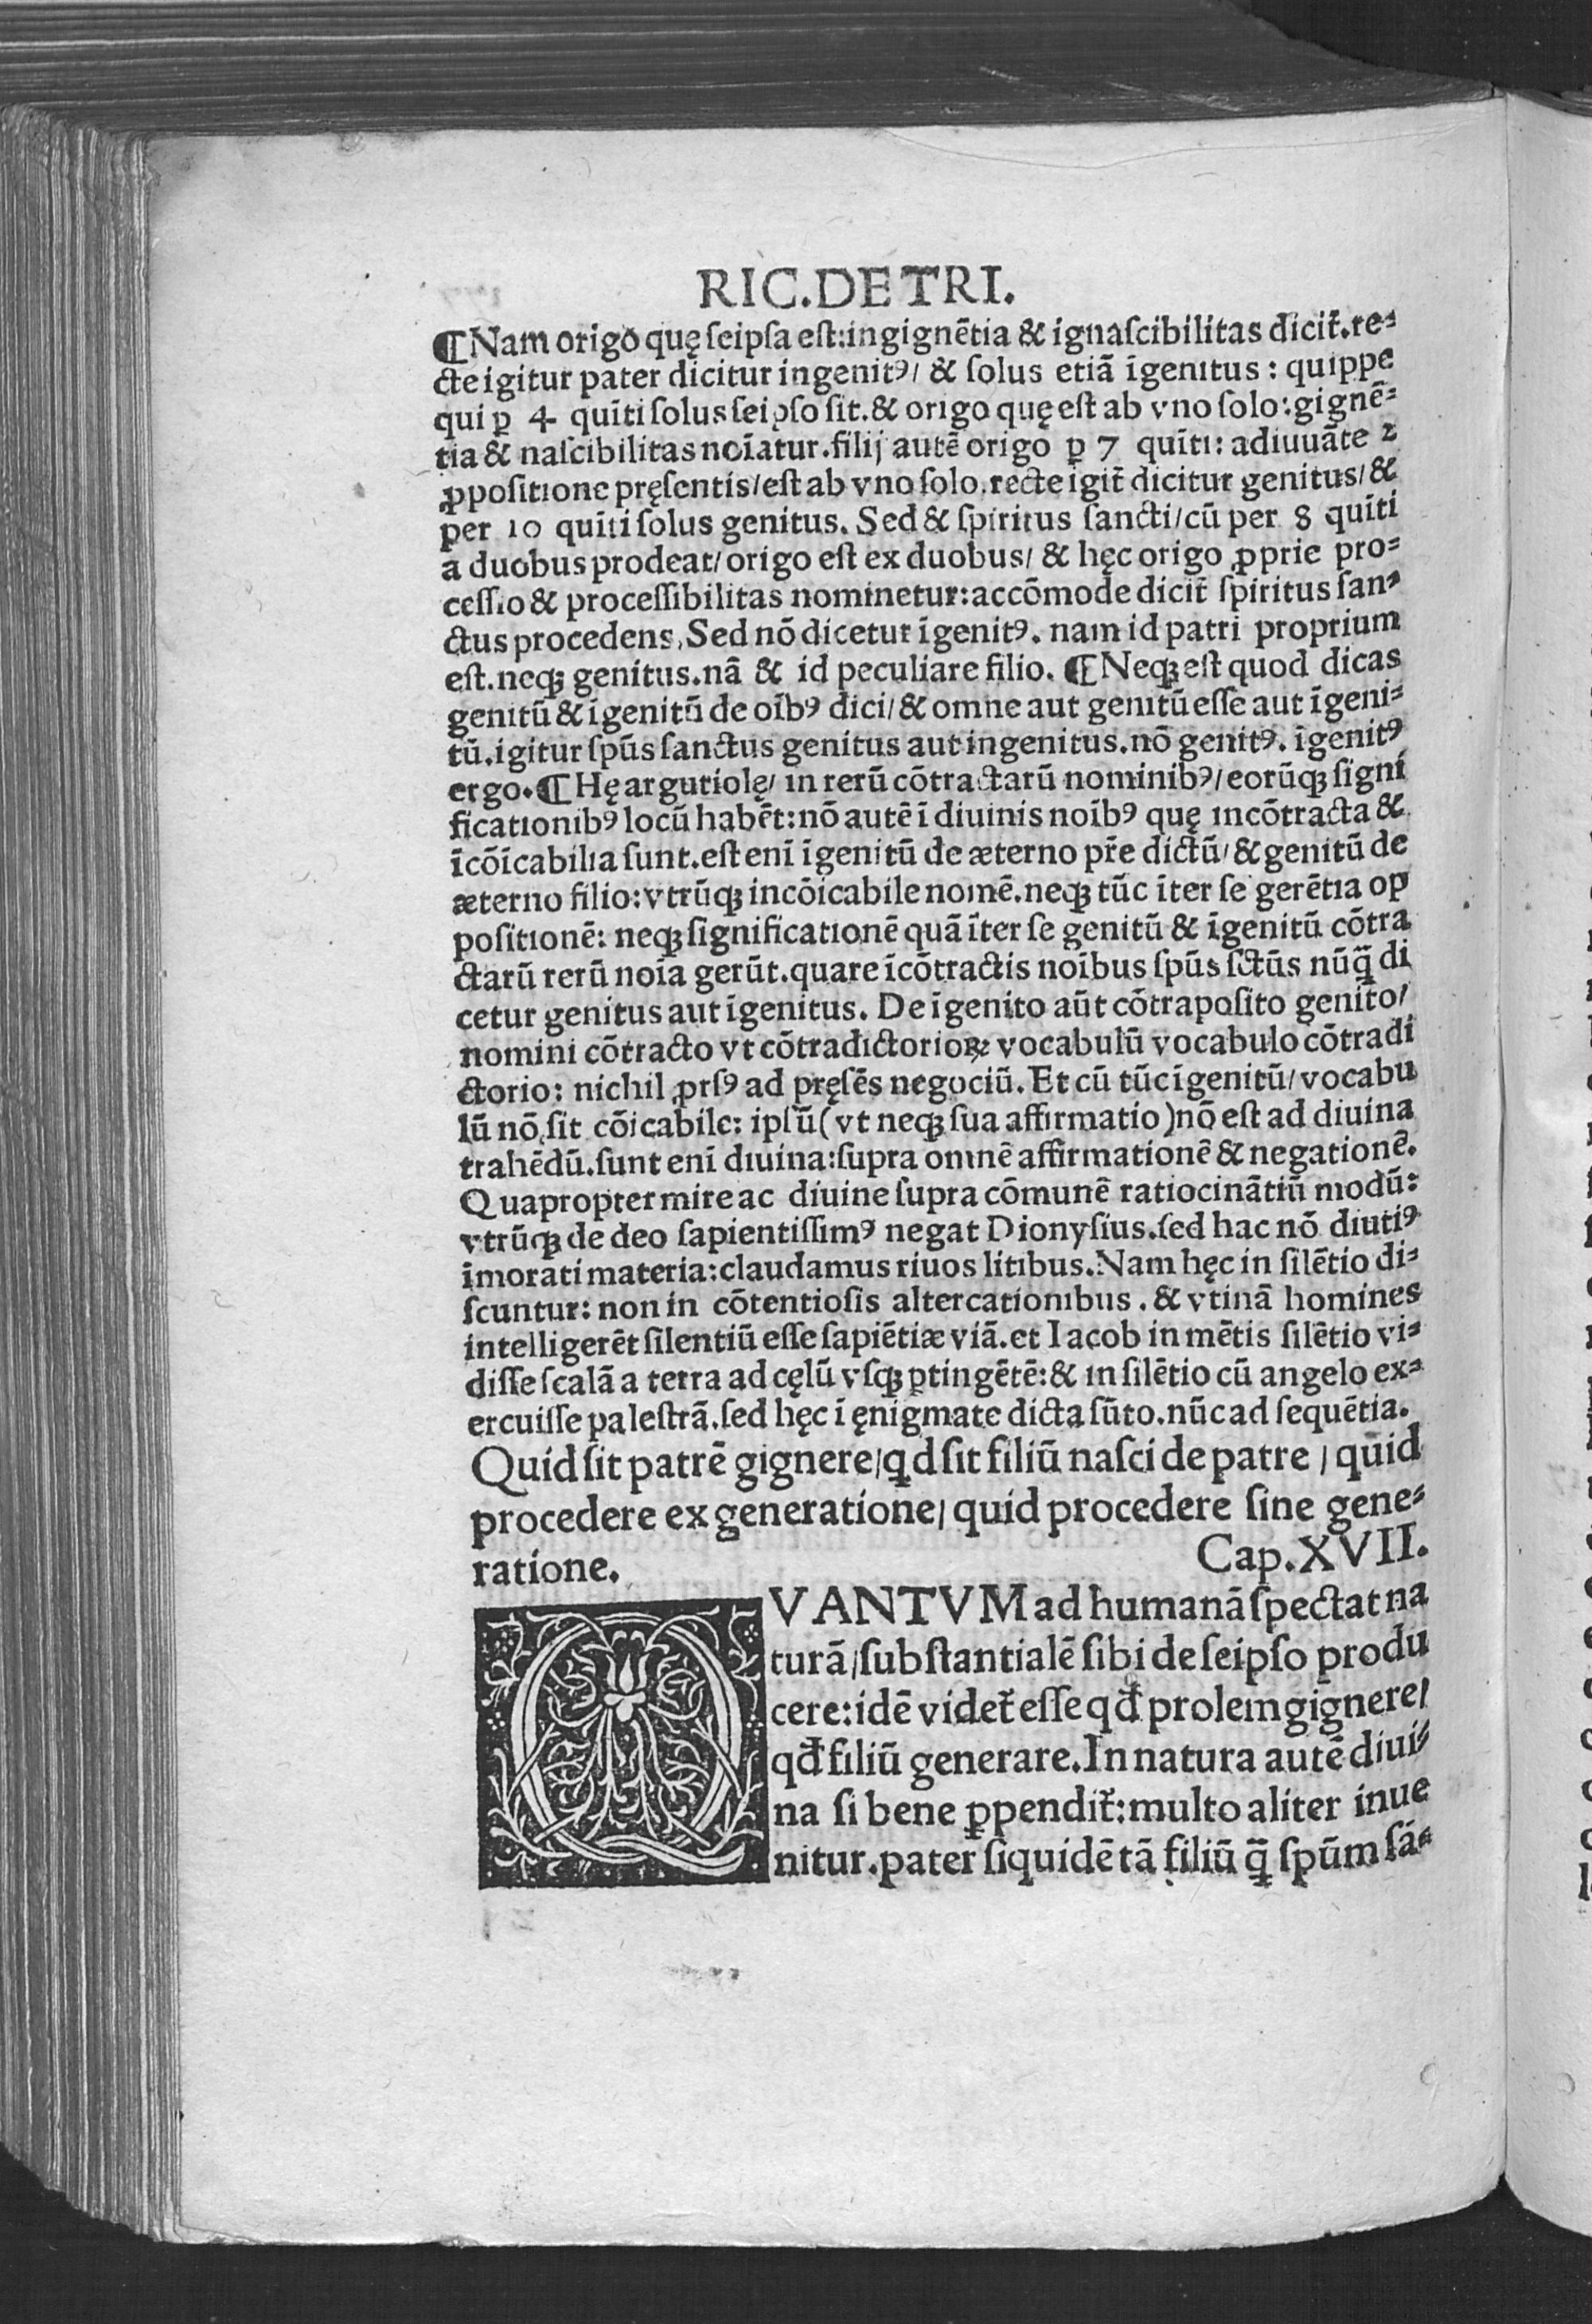 RIC.DE TRI.
¶Nam origo quę ſeipſa eſt:ingignētia & ignaſcibilitas dicit̄.re⸗
cte igitur pater dicitur ingenitꝰ/ & ſolus etiā īgenitus : quippe
qui ꝑ 4 quīti ſolus ſeipſo ſit.& origo quę eſt ab vno ſolo:gignē⸗
tia & naſcibilitas noīatur.filij autē origo ꝑ 7 quīti: adiuuāte 2
ꝓpoſitione pręſentis/eſt ab vno ſolo.recte igit̄ dicitur genitus/&
per 10 quīti ſolus genitus. Sed & ſpiritus ſancti/cū per 8 quīti
a duobus prodeat/origo eſt ex duobus/ & hęc origo ꝓprie pro⸗
ceſſio & proceſſibilitas nominetur:accōmode dicit̄ ſpiritus ſan⸗
ctus procedens.Sed nō dicetur īgenitꝰ. nam id patri proprium
eſt.neqꝫ genitus.nā & id peculiare filio. ¶Neqꝫ eſt quod dicas
genitū & īgenitū de oībꝰ dici/& omne aut genitū eſſe aut īgeni⸗
tū.igitur ſpūs ſanctus genitus aut ingenitus.nō genitꝰ. īgenitꝰ
ergo.¶Hę argutiolę/ in rerū cōtractarū nominibꝰ/eorūqꝫ ſigni
ficationibꝰ locū habēt:nō autē ī diuinis noībꝰ quę incōtracta &
īcōīcabilia ſunt.eſt enī īgenitū de æterno pr̄e dictū/&genitū de
æterno filio:vtrūqꝫ incōicabile nomē.neqꝫ tūc īter ſe gerētia op
poſitionē: neqꝫ ſignificationē quā īter ſe genitū & īgenitū cōtra
ctarū rerū noīa gerūt.quare īcōtractis noībus ſpūs ſctūs nūq̄ di
cetur genitus aut īgenitus. De īgenito aūt cōtrapoſito genito/
nomini cōtracto vt cōtradictorioꝝ vocabulū vocabulo cōtradi
ctorio: nichil ꝓrſꝰ ad pręſēs negociū. Et cū tūc īgenitū/vocabu
lū nō ſit cōicabile: ipſū(vt neqꝫ ſua affirmatio)nō eſt ad diuina
trahēdū.ſunt enī diuina:ſupra omnē affirmationē & negationē.
Quapropter mire ac diuine ſupra cōmunē ratiocinātiū modū:
vtrūqꝫ de deo ſapientiſſimꝰ negat Dionyſius.ſed hac nō diutiꝰ
īmorati materia:claudamus riuos litibus.Nam hęc in ſilētio di⸗
ſcuntur: non in cōtentioſis altercationibus . & vtinā homines
intelligerēt ſilentiū eſſe ſapiētiæ viā.et Iacob in mētis ſilētio vi⸗
diſſe ſcalā a terra ad cęlū vſqꝫ ꝑtingētē:& in ſilētio cū angelo ex⸗
ercuiſſe paleſtrā.ſed hęc ī ęnigmate dicta ſūto.nūc ad ſequētia.
Quid ſit patrē gignere/qd ſit filiū naſci de patre / quid
procedere ex generatione/ quid procedere ſine gene⸗
ratione. Cap.XVII.
QVANTVM ad humanā ſpectat na
turā/ſubſtantialē ſibi de ſeipſo produ
cere:idē videt̄ eſſe qđ prolem gignere/
qđ filiū generare.In natura autē diui⸗
na ſi bene ꝑpendit̄:multo aliter inue
nitur.pater ſiquidē tā filiū q̄ ſpūm ſā⸗